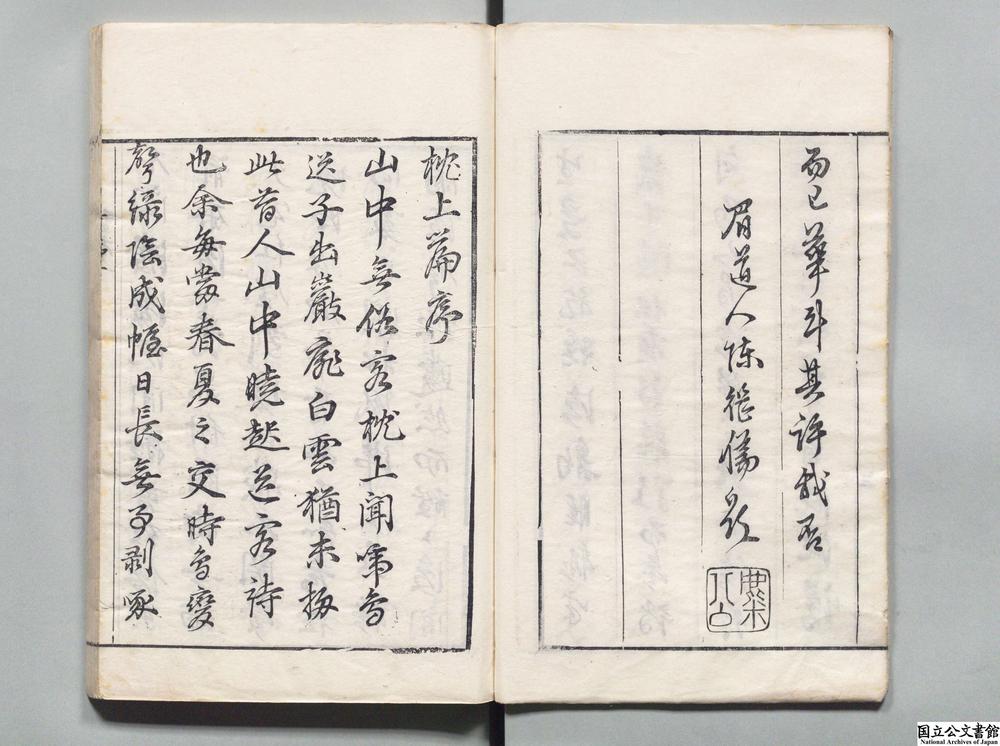 而已華斗其許我否
眉道人陳從
枕上篇序
山中無俗客枕上聞啼鳥
送子出巖扉白雲猶未掃
此昔人山中曉起送客詩
也余每當春夏之交時鳥變
聲綠陰成幄日長無事剥啄
國立公文書館
National Archives of Japan